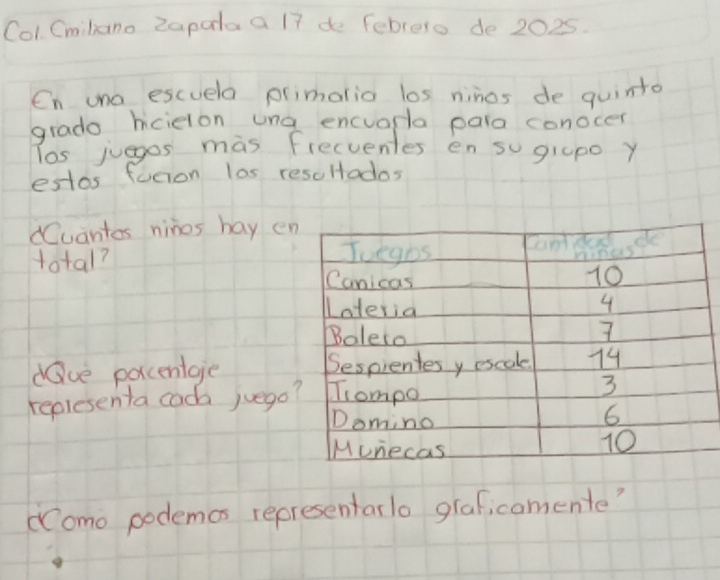 Col. Cmiliano Zapata a 17 de febrero de 2025.
En una escuela primaria los niños de quinto
grado hicieron una encuarta para conocer
los juegos más frecuentes en su grupo y
estos fucion los resultados
¿Cuántos niños hay en
total?
Juegos Cantidad de niños
Canicas 10
Loteria 4
Balero 7
Serpientes y escale 14
Trompo 3
Domino 6
Muñecas 10
¿Qué porcentaje
representa cada juego?
¿Como podemos representarlo graficamente?